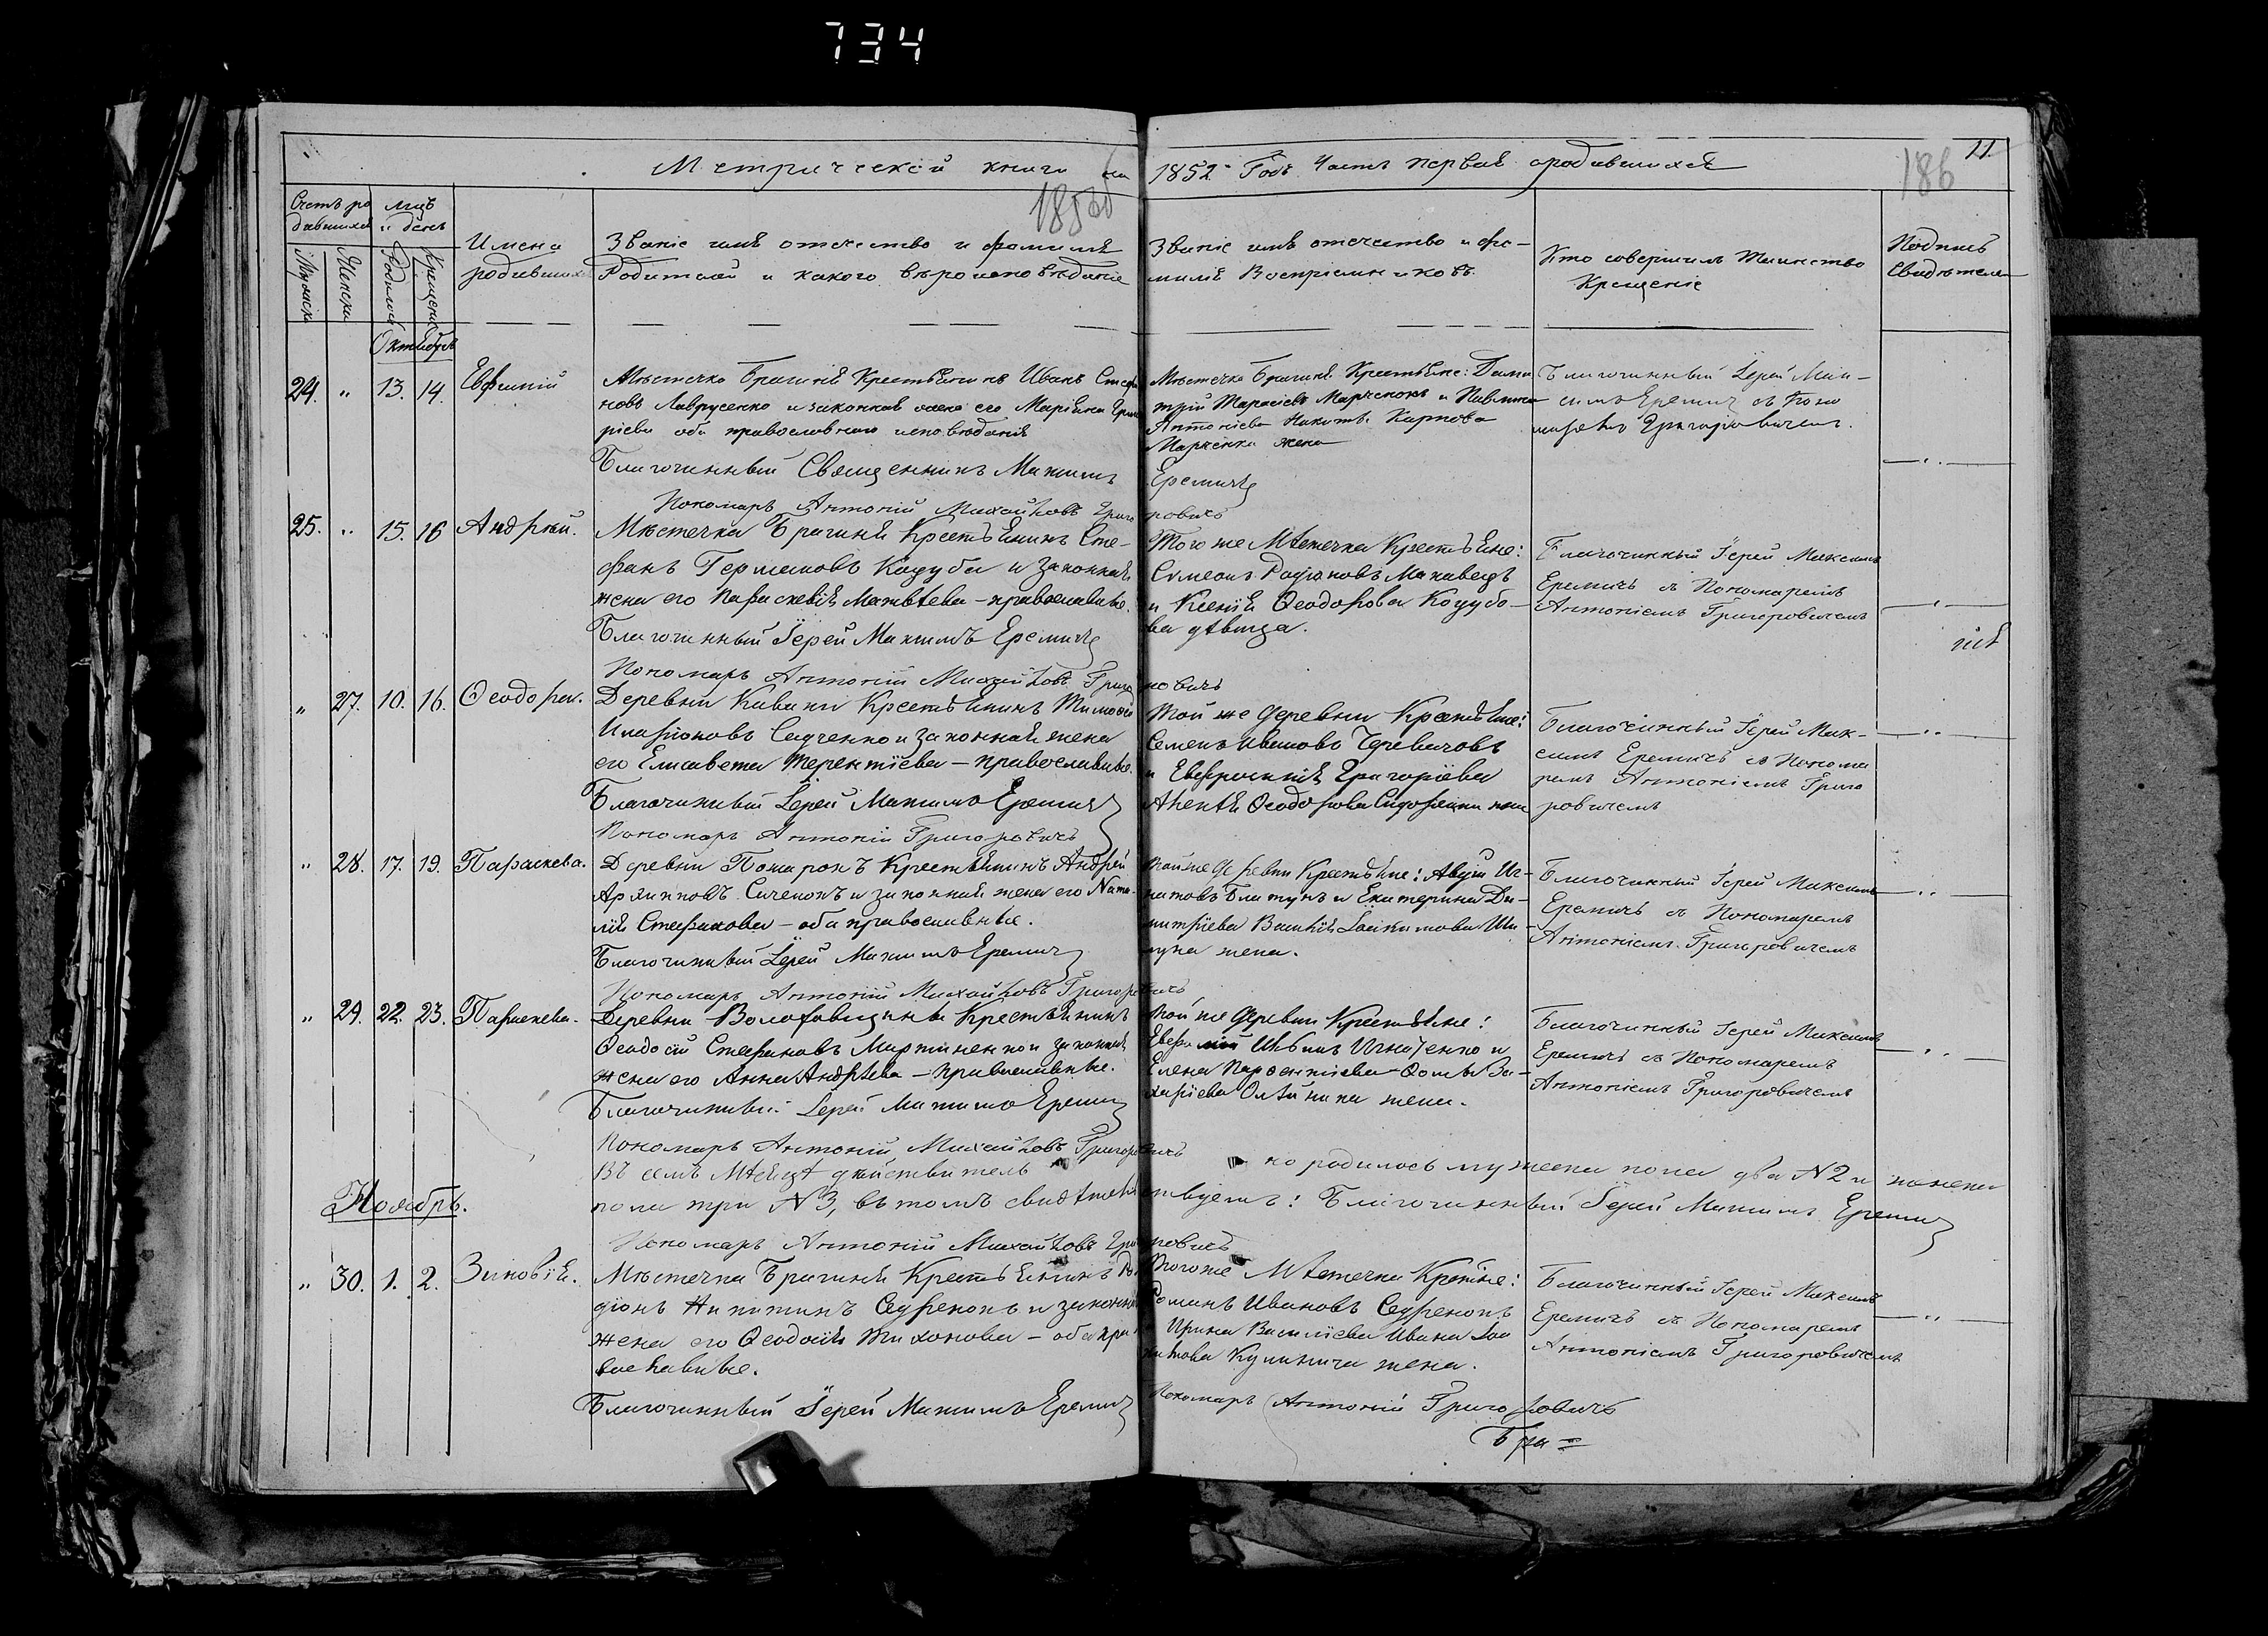 734
Метрической книги на 1852 Годъ Часть первая о родившихся
11.
186
1852
Счетъ ро
дившихся
мцъ
и день
Имена
родивших
Званіе имя отечество и фамилія
Родителей и какого вѣроисповѣданія
Званіе имя отечество и фа-
милія Воспріемниковъ
Кто совершилъ таинство
Крещенія
Подпись
Свидѣтелей
Мужеска
Женска
Родился
Крещенія
Октябрь
24. " 13. 14. Евфимій
Мѣстечка Брагиня Крестьянинъ Иванъ Стефа
новъ Лаврусенко и законная жена его Маріяна Григо
ріева оба православнаго исповѣданія
Благочинный Священникъ Максимъ Еремичъ
Пономарь Антоній Михайловъ Григоровичъ
Мѣстечка Брагиня Крестьяне: Дими
трій Тарасіевъ Марченокъ и
Антоніева Никиты Карпова
Марченка жена
Благочинный Іерей Мак-
симъ Еремичъ съ Поно
маремъ Григоровичемъ.
25. " 15. 16 Андрей.
Мѣстечка Брагиня Крестьянинъ Сте-
фанъ Германовъ Коцуба и законная
жена его Параскевія Матвѣева - православные.
Благочинный Іерей Максимъ Еремичъ
Пономарь Антоній Михайловъ Григоровичъ
Того же Мѣстечка Крестьяне:
Симеонъ Родіоновъ Маковецъ
и Ксенія Ѳеодорова Коцубо-
ва дѣвица.
Благочинный Іерей Максимъ
Еремичъ съ Пономаремъ
Антоніемъ Григоровичемъ
" 27. 10. 16. Ѳеодора.
Деревни Каваки Крестьянинъ Тимоѳей
Иларіоновъ Садченко и законная жена
его Елисавета Терентіева - православные.
Благочинный Іерей Максимъ Еремичъ
Пономарь Антоній Григоровичъ
Той же деревни Крестьяне:
Семенъ Ивановъ Черевачовъ
и Евфросинія Григоріева
Ѳеодорова жена
Благочинный Іерей Мак-
симъ Еремичъ съ Понома
ремъ Антоніемъ Григо
ровичемъ
" 28. 17. 19. Параскева.
Деревни Пожарокъ Крестьянинъ Андрей
Архиповъ Сиченокъ и законная жена его Ната-
лія Стефанова - оба православные.
Благочинный Іерей Максимъ Еремичъ
Пономарь Антоній Михайловъ Григоровичъ
Той же деревни Крестьяне: Авдій Иг-
натовъ Блатунъ и Екатерина Ди-
митріева Василія Іоакимова Ши-
луна жена.
Благочинный Іерей Максимъ
Еремичъ съ Пономаремъ
Антоніемъ Григоровичемъ
" 29. 22. 23. Параскева.
Деревни Волоховщины Крестьянинъ
Ѳеодосій Стефановъ Мартиненко и законная
жена его Анна Андреева - православные.
Благочинный Іерей Максимъ Еремичъ
Пономарь Антоній Михайловъ Григоровичъ
Той же деревни Крестьяне:
Игнатенко и
Елена Парѳентіева Ѳомы За-
харіева Олѣйника жена.
Благочинный Іерей Максимъ
Еремичъ съ Пономаремъ
Антоніемъ Григоровичемъ
Въ семъ Мѣсяцѣ дѣйствительно родилось мужеска пола два №2 и женска
пола три №3, въ томъ свидѣтельствуемъ: Благочинный Іерей Максимъ Еремичъ
Пономарь Антоній Михайловъ Григоровичъ
Ноябрь.
" 30. 1. 2. Зиновія.
Мѣстечка Брагиня Крестьянинъ Ро
діонъ Никитинъ Седренокъ и законная
жена его Ѳеодосія Тихонова - оба пра
вославные.
Благочинный Іерей Максимъ Еремичъ
Того же Мѣстечка Крестьяне:
Романъ Ивановъ Седренокъ
Ирина Василіева Ивана Іоа
кимова Кулинича жена.
Пономарь Антоній Григоровичъ
Благочинный Іерей Максимъ
Еремичъ съ Пономаремъ
Антоніемъ Григоровичемъ
Бра=